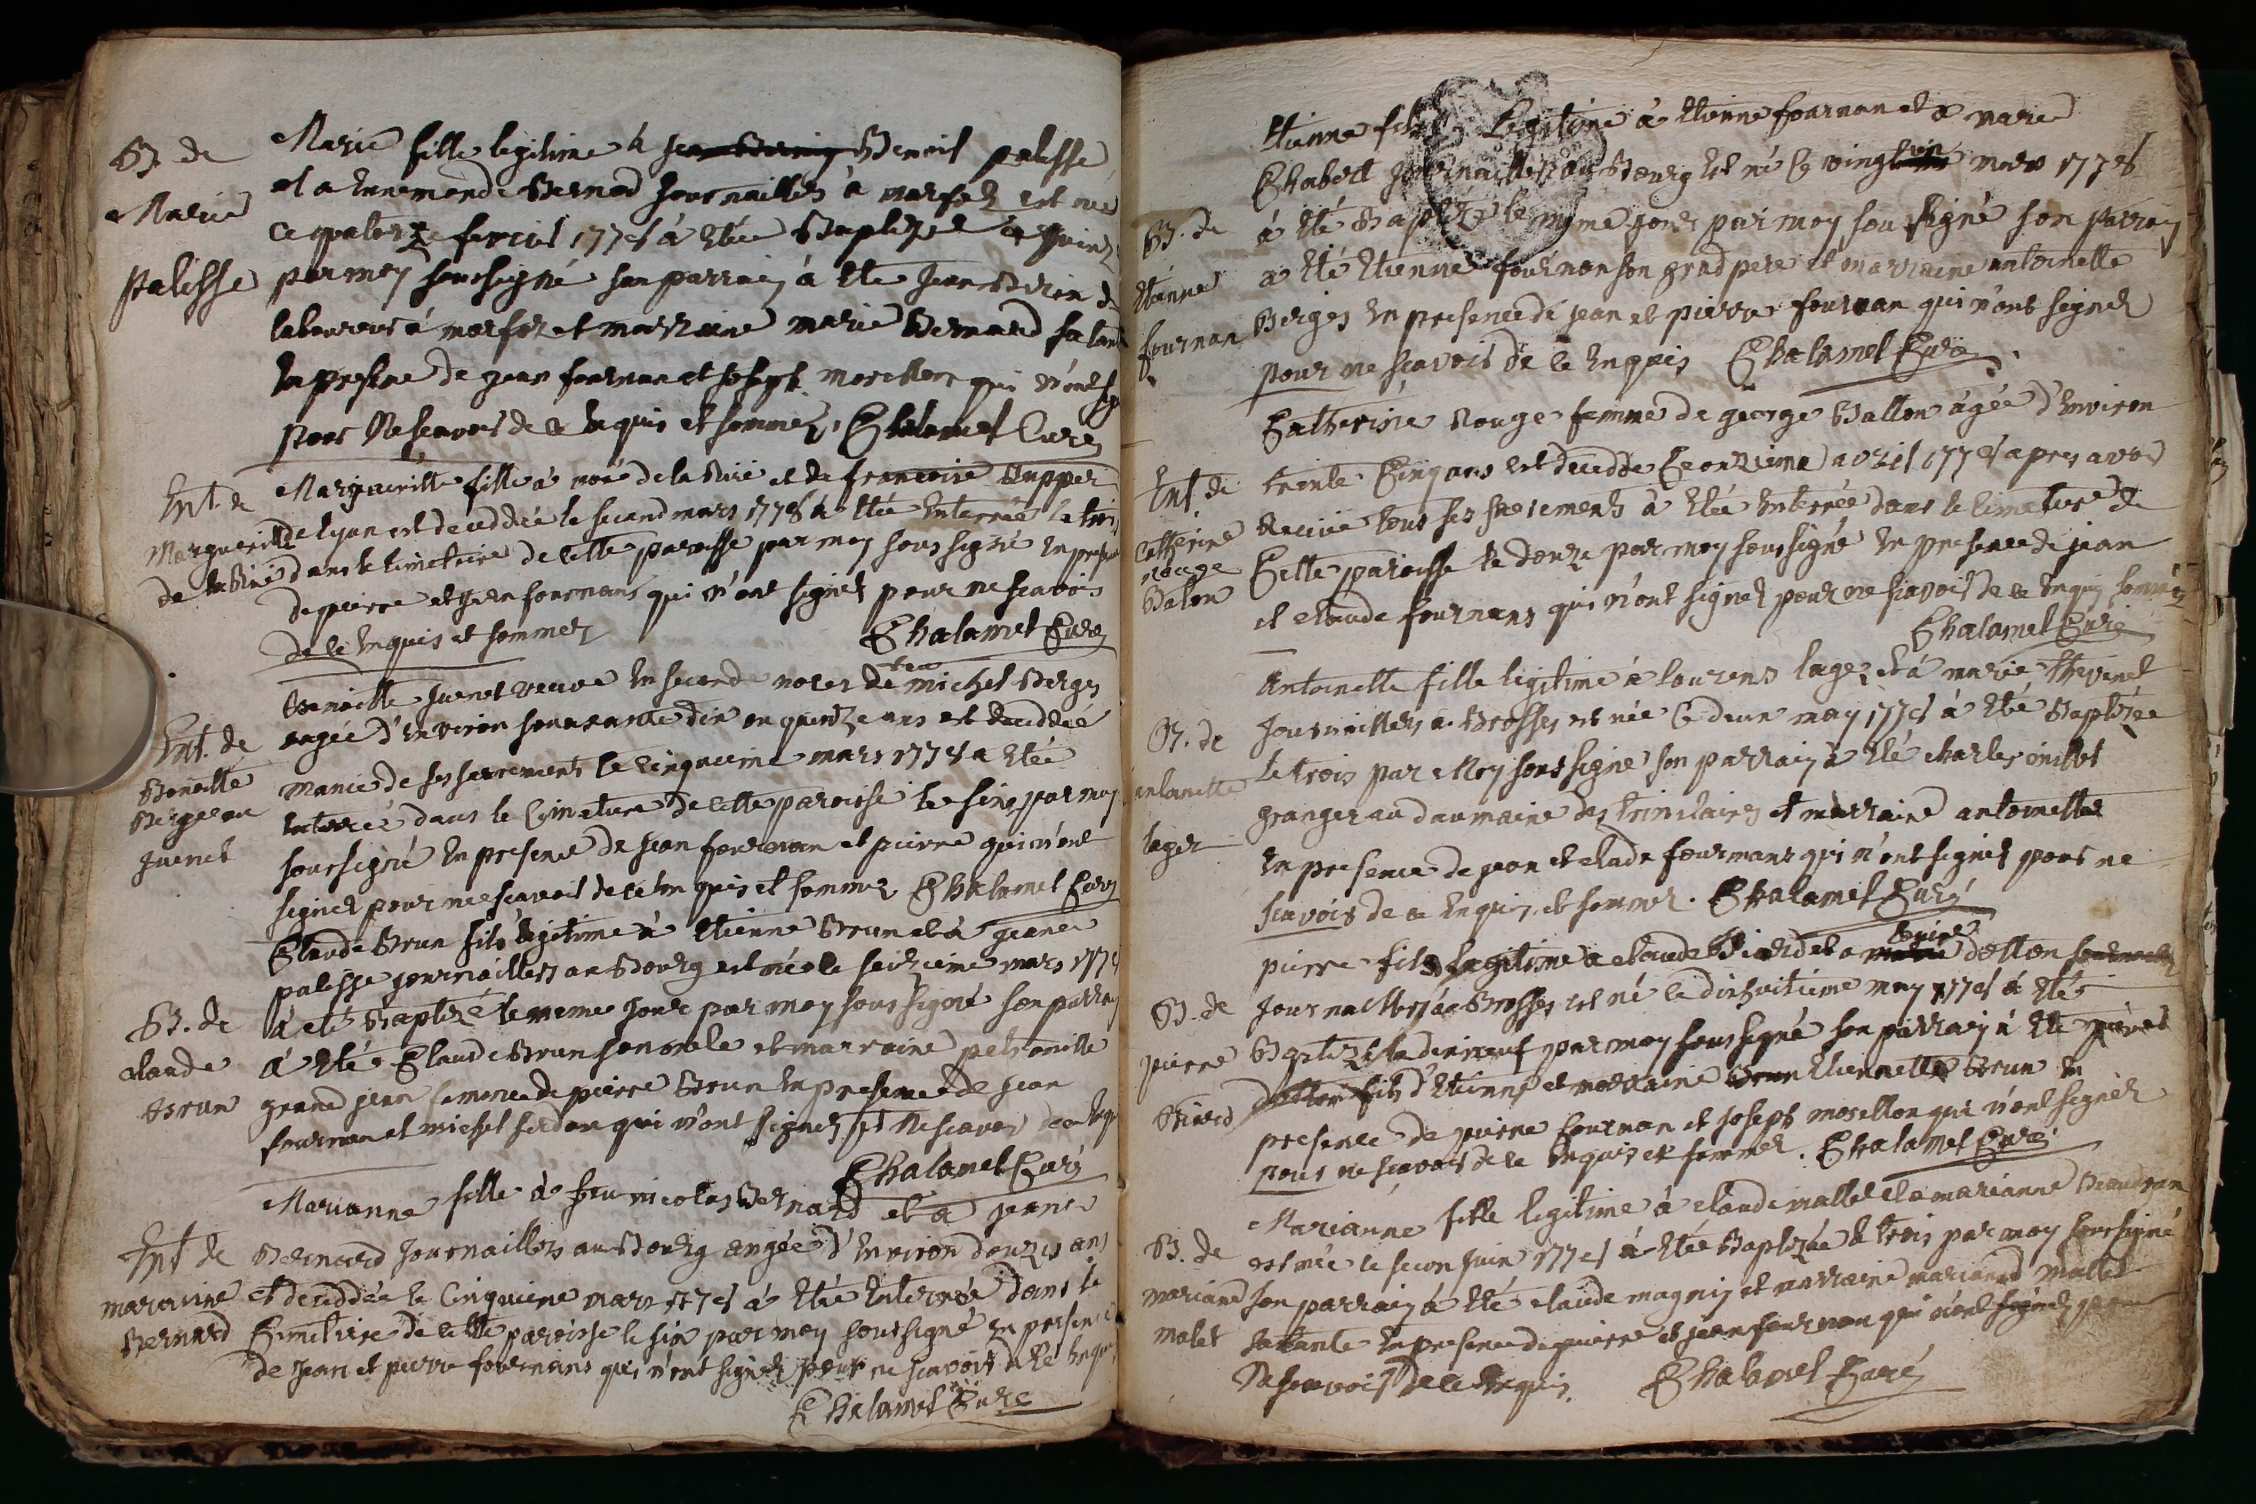 B. de
Marie
palisse
Marie fille legitime à Benoit palisse
et a Ennemonde Bernard journailliers à marfoz est née
ce quatorze fevrier 1778 à etée Baptizée le quinze
par moy soussigné son parrain à ete Jean
laboureur à marfoz et marraine marie Bernard sa tante
En presence de jean fournan et joseph morellon qui n'ont signé
pour Ne scavoir de ce Enquis et sommez. Chalamel Curé
Ent. de
Margueritte
de la Pine
Margueritte fille à de la et de francoise
de lyon est deceddée le second mars 1778 à etée Enterrée le trois
dans le cimetiere de cette paroisse par moy soussigné En presence
de pierre et jean fournans qui n'ont signez pour ne scavoir
de ce Enquis et sommez
Chalamel Curé
Ent. de
Benoitte
Bergeron
juenet
Benoitte juenet veuve En seconde noces de michel Berger
aagée d'Environ souasante dix ou quinze ans est deceddée
manie de ses sacrements le cinquieme mars 1778 a etée
Enterrée dans le Cimetiere de cette paroisse le six par moy
soussigné En presence de jean fournan et pierre qui n'ont
signez pour ne scavoir de ce Enquis et sommez Chalamel Curé
B. de
claude
Brun
Claude Brun fils legitime à Etienne Brun et à jeane
palisse journailliers au Bourg est né le seizieme mars 1778
à eté Baptizé le meme jour par moy soussigné son parrain
à eté Claude Brun son oncle et marraine petronille
grand jean femme de pierre Brun En presence de jean
fournan et michel qui n'ont signez pr Ne scavoir de ce Enquis
Chalamel Curé
Ent de
marianne
Bernard
Marianne fille à feu nicolas Bernard et a jeane
Bernard journailliers au Bourg aagée d'Environ douze ans
et deceddée le Cinquieme mars 1778 à etée Enterrée dans le
Cimetiere de cette paroisse le six par moy soussigné En presence
de jean et pierre fournans qui n'ont signez pour ne scavoir de ce Enquis
Chalamel Curé
B. de
Etienne
fournan
Etienne fils Legitime à Etienne fournan et a marie
Chabert journailliers au Bourg est né ce vingt un mars 1778
à eté Baptizé le meme jour par moy soussigné son parrain
a eté Etienne fournan son grand pere et marraine antoinette
Berger En presence de jean et pierre fournan qui n'ont signez
pour ne scavoir de ce Enquis Chalamel Curé
Ent. de
Catherine
rouge
Balon
Catherine Rouge femme de george Ballon âgée d'Environ
trente Cinq ans est deceddée Ce onzieme avril 1778 apres avoir
Receuie tous ses sacrements à etée Enterrée dans le cimetiere de
Cette paroisse le douze par moy soussigné En presence de jean
et claude fournans qui n'ont signez pour ne scavoir de ce Enquis sommez
Chalamel Curé
B. de
antoinette
lager
Antoinette fille legitime à laurens lager et à marie thevenet
journailliers a Brosses est née Ce deux may 1778 à eté Baptizée
le trois par Moy soussigné son parrain à eté charles
granger au daumaine des trinitaires et marraine antoinette
En presence de jean et claude fournans qui n'ont signez pour ne
scavoir de ce Enquis et sommez. Chalamel Curé
B. de
pierre
Biard
pierre fils legitime a claude Biard et a dotton
journailliers a Brosses est né le dixhuitieme may 1778 à eté
Baptizé le dixneuf par moy soussigné son parrain à eté pierre
dotton fils d'Etienne et marraine Etiennette Brun En
presence de pierre fournan et joseph morellon qui n'ont signez
pour ne scavoir de ce Enquis et sommez. Chalamel Curé
B. de
mariane
malet
Marianne fille legitime à claude mallet et a marianne
est née le secon juin 1778 à etée Baptizée le trois par moy soussigné
son parrain à eté claude magnin et marraine mariane mallet
sa tante En presence de pierre et jean fournan qui n'ont signez pour
Ne scavoir de ce Enquis. Chalamel Curé